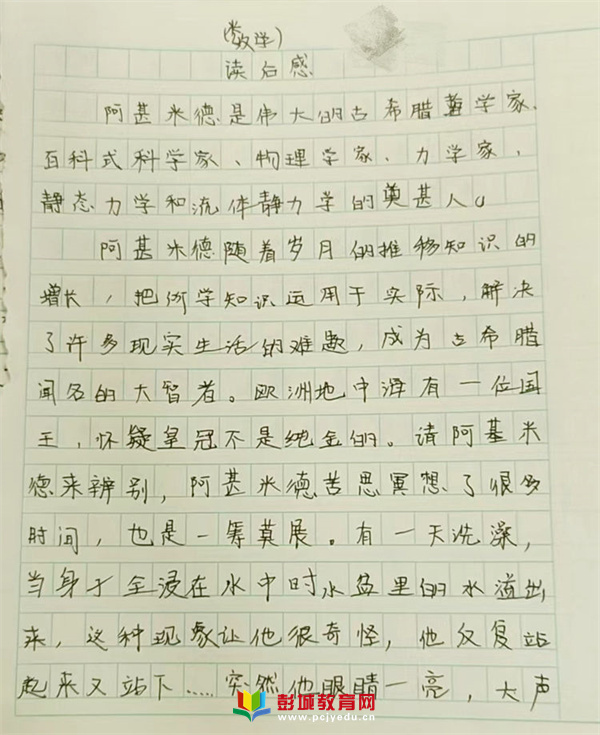 (数学)
读后感
阿基米德是伟大的古希腊哲学家、
百科式科学家、物理学家、力学家、
静态力学和流体静力学的奠基人。
阿基米德随着岁月的推移知识的
增长,把所学知识运用于实际,解决
了许多现实生活的难题,成为古希腊
闻名的大智者。欧洲地中海有一位国
王,怀疑皇冠不是纯金的。请阿基米
德来辨别,阿基米德苦思冥想了很多
时间,也是一筹莫展。有一天洗澡,
当身子全浸在水中时水盆里的水溢出
来,这种现象让他很奇怪,他反复站
起来又站下……突然他眼睛一亮,大声
彭城教育网
www.pcjyedu.cn